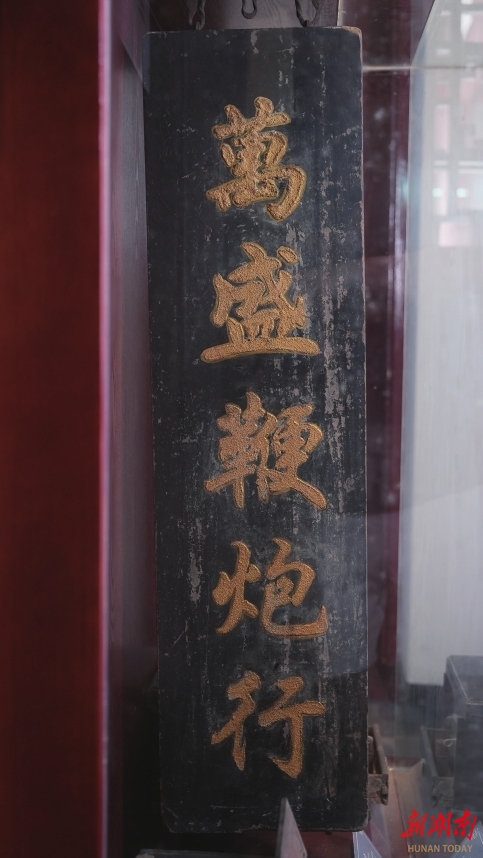 萬盛鞭炮行
新湖南
HUNAN TODAY